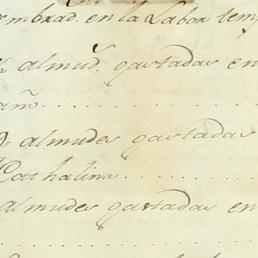 sembrad. en la Labor temp
almud.s gastadas en
año
9.. almudes gastadas
Cathalina
almudes gastadas en